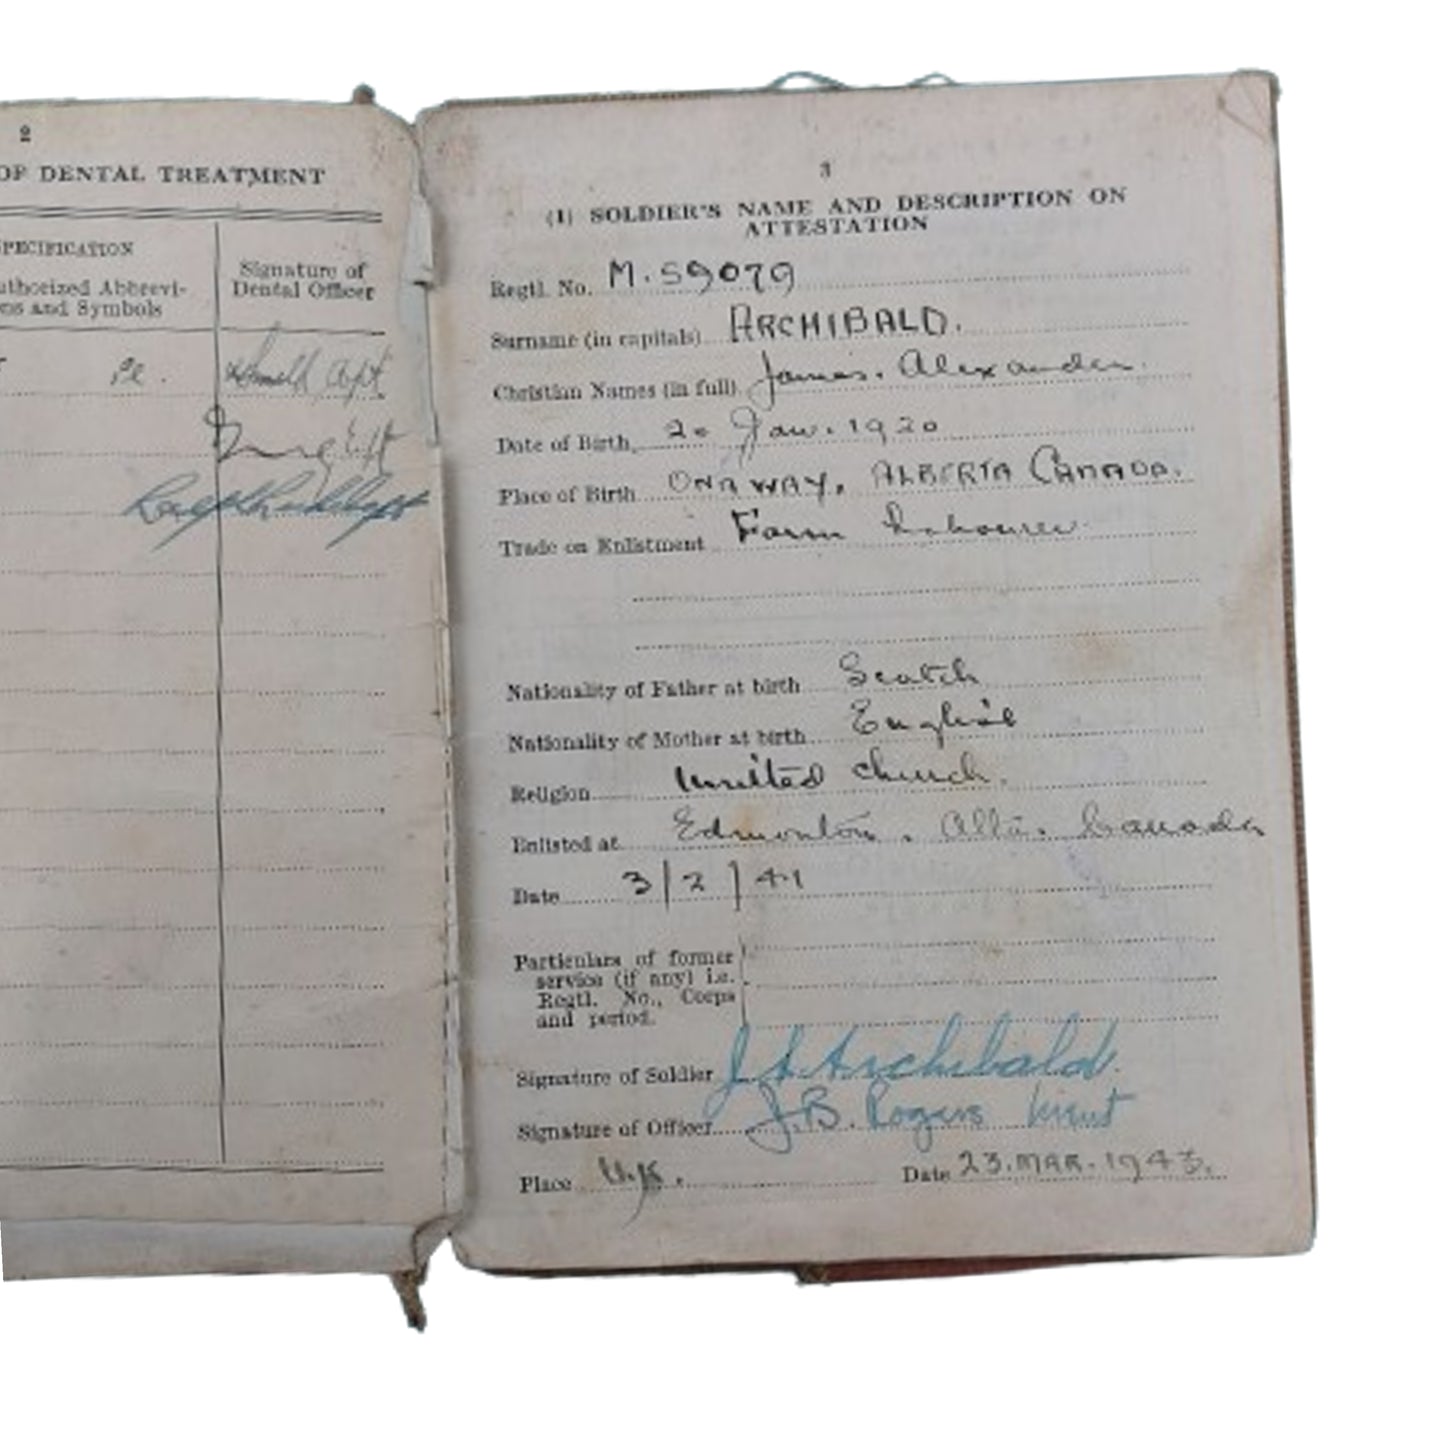 2
OF DENTAL TREATMENT
SPECIFICATION
Authorized Abbrevi-
ons and Symbols
Signature of
Dental Officer
Capt
3
(1) SOLDIER'S NAME AND DESCRIPTION ON
ATTESTATION
Regtl. No. M.59079
Surname (in capitals) ARCHIBALD.
Christian Names (in full) James. Alexander.
Date of Birth 20 Jan. 1920
Place of Birth ONAWAY, ALBERTA CANADA.
Trade on Enlistment Farm Labourer
Nationality of Father at birth Scotch
Nationality of Mother at birth English
Religion United church.
Enlisted at Edmonton, Alta. Canada
Date 3/2/41
Particulars of former
service (if any) i.e.
Regtl. No., Corps
and period.
Signature of Soldier J A Archibald.
Signature of Officer J.B. Rogers Lieut
Place U.K. Date 23.MAR.1943.